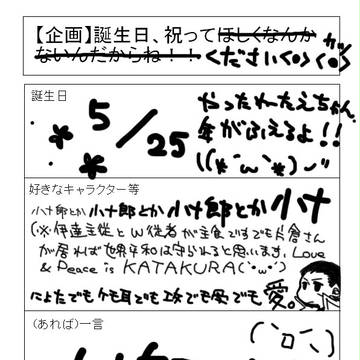 【企画】誕生日、祝ってほしくなんか
ないんだからね！！くださいくぉ
誕生日
5/25
やったねたえちゃん、
年がふえるよ！！
((*´ω`*)
好きなキャラクター等
小十郎とか小十郎とか小十郎とか小十
(※伊達主従とW従者が主食ですでも片倉さん
が居れば世界平和は守られると思います。Love
& Peace is KATAKURA(`・ω・´)
にょたでもケモ耳でも攻でも受でも愛。
(あれば)一言